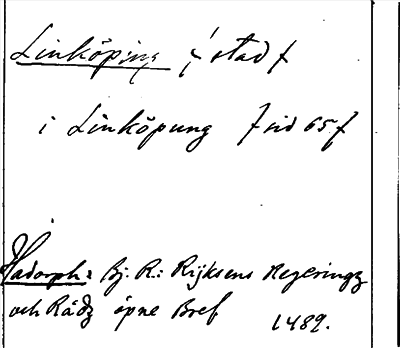 Linköping /stad/
i Linköpung 7 sid 65 f
Hadorph: Bj. R.: Rijksens Regeringz
och Rådz öpne Bref 1489.